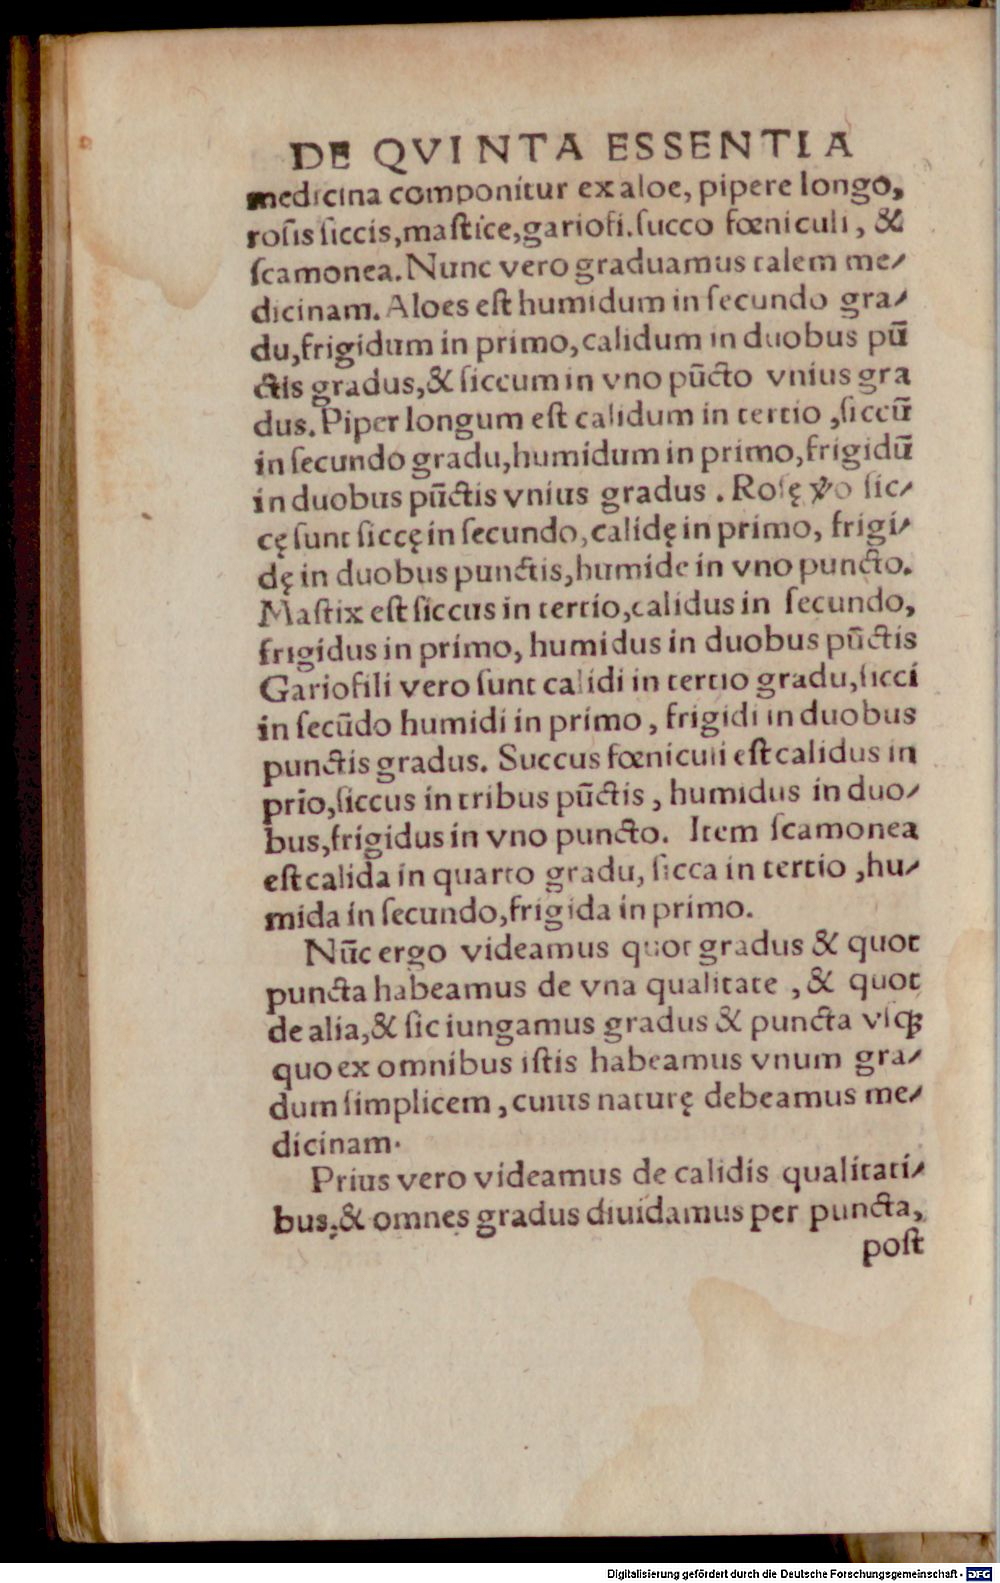 DE QVINTA ESSENTIA
medicina componitur ex aloe, pipere longo,
rosis siccis, mastice, gariofi. succo fœniculi, &
scamonea. Nunc vero graduamus talem me/
dicinam. Aloes est humidum in secundo gra/
du, frigidum in primo, calidum in duobus pū
ctis gradus, & siccum in vno pūcto vnius gra
dus. Piper longum est calidum in tertio, siccū
in secundo gradu, humidum in primo, frigidū
in duobus pūctis vnius gradus. Rosę ꝟo sic/
cę sunt siccę in secundo, calidę in primo, frigi/
dę in duobus punctis, humide in vno puncto.
Mastix est siccus in tertio, calidus in secundo,
frigidus in primo, humidus in duobus pūctis
Gariofili vero sunt calidi in tertio gradu, sicci
in secūdo humidi in primo, frigidi in duobus
punctis gradus. Succus fœniculi est calidus in
prio, siccus in tribus pūctis, humidus in duo/
bus, frigidus in vno puncto. Item scamonea
est calida in quarto gradu, sicca in tertio, hu/
mida in secundo, frigida in primo.
Nūc ergo videamus quot gradus & quot
puncta habeamus de vna qualitate, & quot
de alia, & sic iungamus gradus & puncta vsq;
quo ex omnibus istis habeamus vnum gra/
dum simplicem, cuius naturę debeamus me/
dicinam.
Prius vero videamus de calidis qualitati/
bus, & omnes gradus diuidamus per puncta,
post
Digitalisierung gefördert durch die Deutsche Forschungsgemeinschaft - DFG